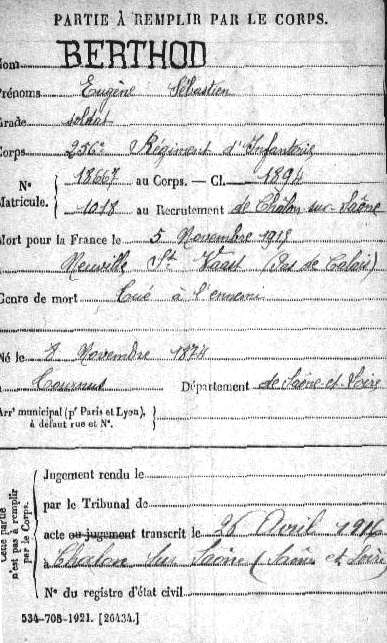 PARTIE À REMPLIR PAR LE CORPS.
Nom BERTHOD
Prénoms Eugène Sébastien
Grade soldat
Corps 256e Régiment d'Infanterie
N° 18667 au Corps. — Cl. 1894
Matricule. 1018 au Recrutement de Châlon-sur-Saône
Mort pour la France le 5 Novembre 1915
Neuville St Vaast (Pas de Calais)
Genre de mort Tué à l'ennemi
Né le 2 Novembre 1874
à Tournus Département de Saône-et-Loire
Arrt municipal (pr Paris et Lyon),
à défaut rue et N°.
Cette partie
n'est pas à remplir
par le Corps.
Jugement rendu le
par le Tribunal de
acte ou jugement transcrit le 26 Avril 1916
à Chalon sur Saône (Saône et Loire)
N° du registre d'état civil
534-708-1921. [26434.]